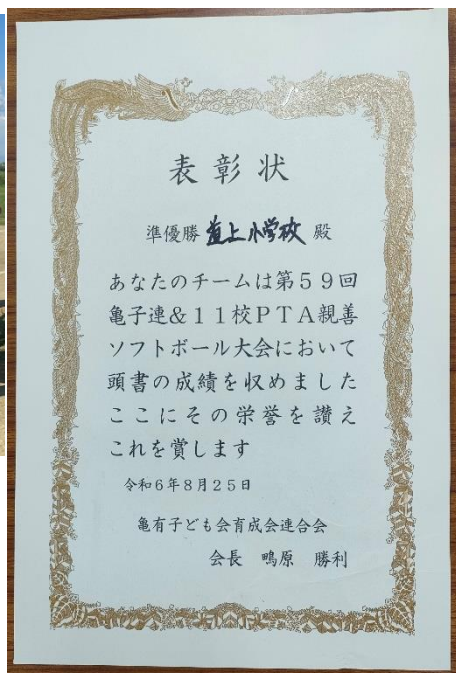 表彰状
準優勝 道上小学校 殿
あなたのチームは第59回
亀子連&11校PTA親善
ソフトボール大会において
頭書の成績を収めました
ここにその栄誉を讃え
これを賞します
令和6年8月25日
亀有子ども会育成会連合会
会長 鴫原 勝利